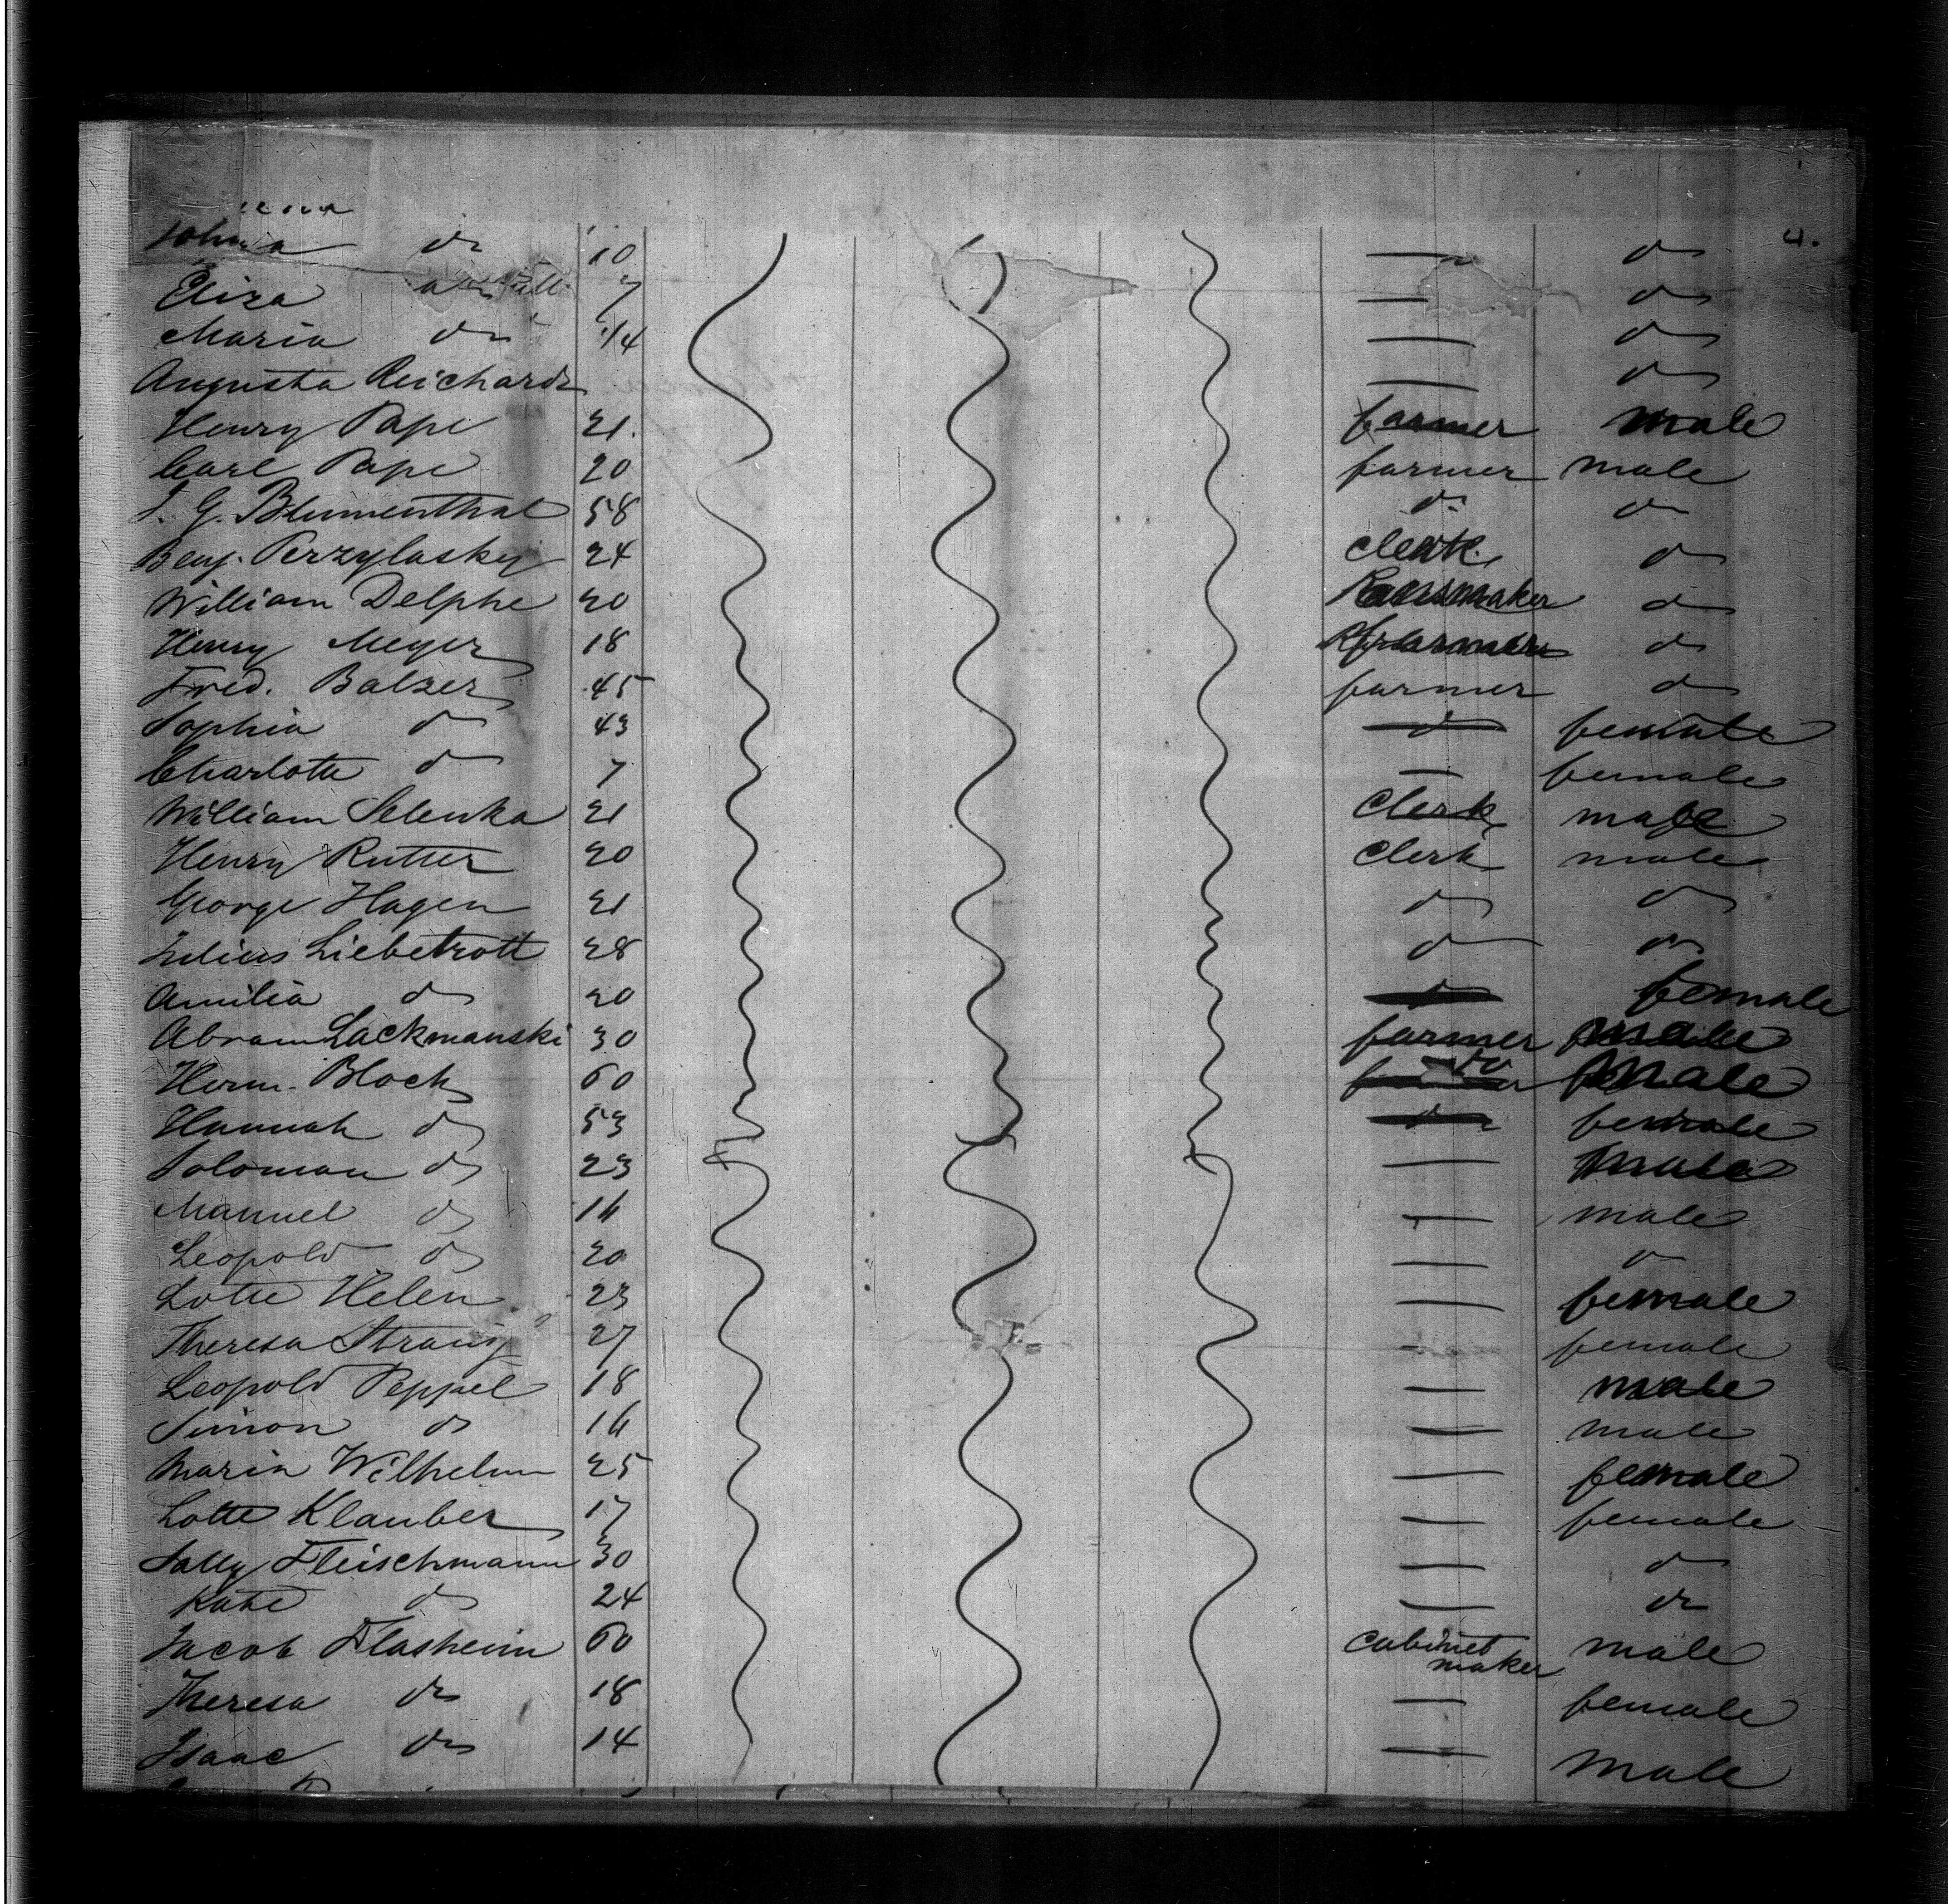 do 10 — do 4.
Eliza do 7 — do
Maria do 1/4 — do
Augusta Reichard — do
Henry Pape 21. farmer male
Carl Pape 20 farmer male
J. G. Blumenthal 58 do do
Benj. Perzylasky 24 clerk do
William Delphe 20 do
Henry Meyer 18 do
Fred. Balzer 45 farmer do
Sophia do 43 do female
Charlotte do 7 — female
William Selenka 21 Clerk male
Henry Rutter 20 Clerk male
George Hagen 21 do do
Julius Liebetrott 28 do do
Amilia do 20 do female
Abram Lackmanski 30 farmer male
Herm. Block 60 do male
Hannah do 53 do female
Soloman do 23 — male
Manuel do 16 — male
Leopold do 20 — do
Lotte Helen 23 — female
Theresa Strauss 27 — female
Leopold Peppel 18 — male
Simon do 16 — male
Maria Wilhelm 25 — female
Lotte Klauber 17 — female
Sally Fleischmann 30 — do
Kate do 24 — do
Jacob Flasheim 60 cabinet maker male
Theresa do 18 — female
Isaac do 14 — male